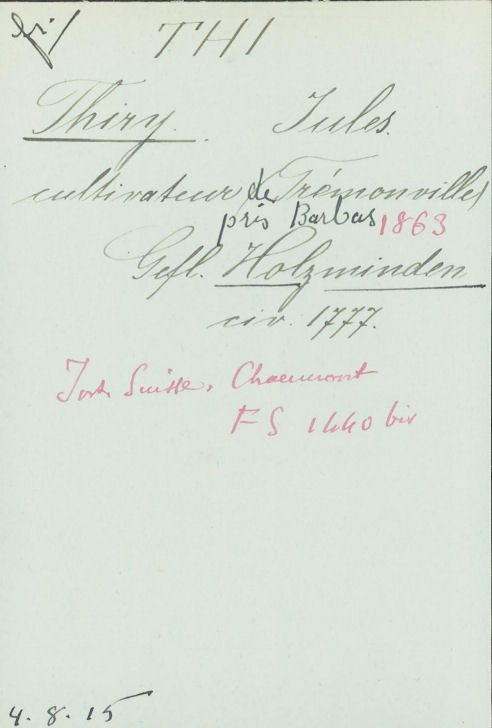 THI
Thiry. Jules.
cultivateur de Trémonville
près Barbas 1863
Gefl. Holzminden
civ. 1777.
Suisse, Chaumont
FS 1440 bis
4. 8. 15